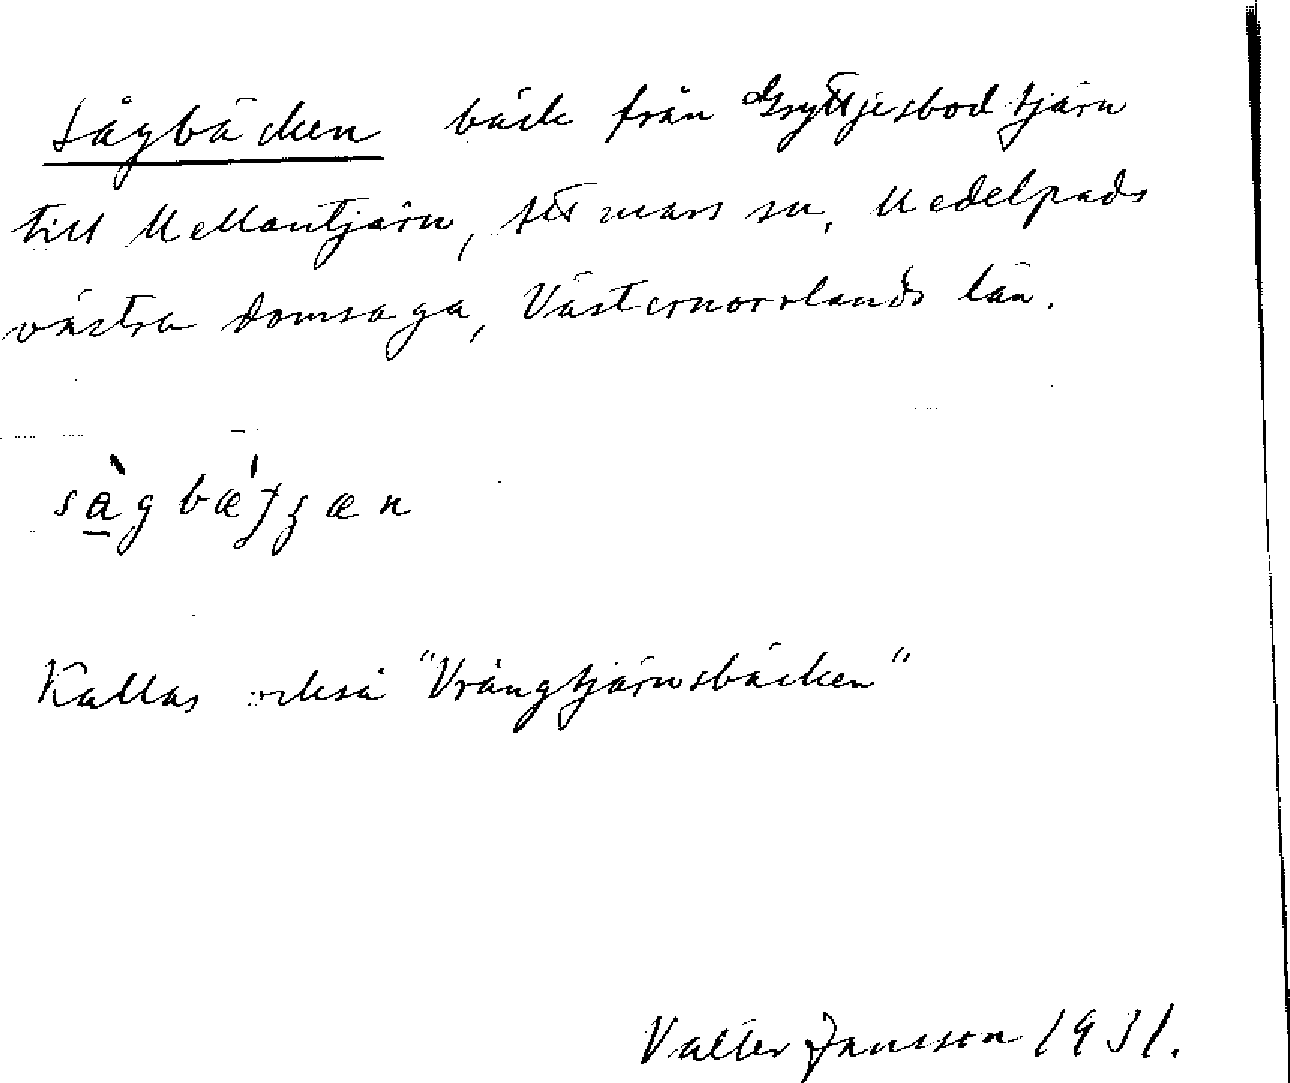 Sågbäcken bäck från Gryttjesbodtjärn
till Mellantjärn, Attmars sn, Medelpads
västra domsaga, Västernorrlands län.
Kallas också "Vrångtjärnsbäcken"
Valter Jansson 1931.